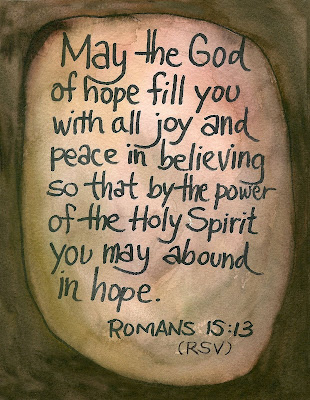 May the God
of hope fill you
with all joy and
peace in believing
so that by the power
of the Holy Spirit
you may abound
in hope.
ROMANS 15:13
(RSV)